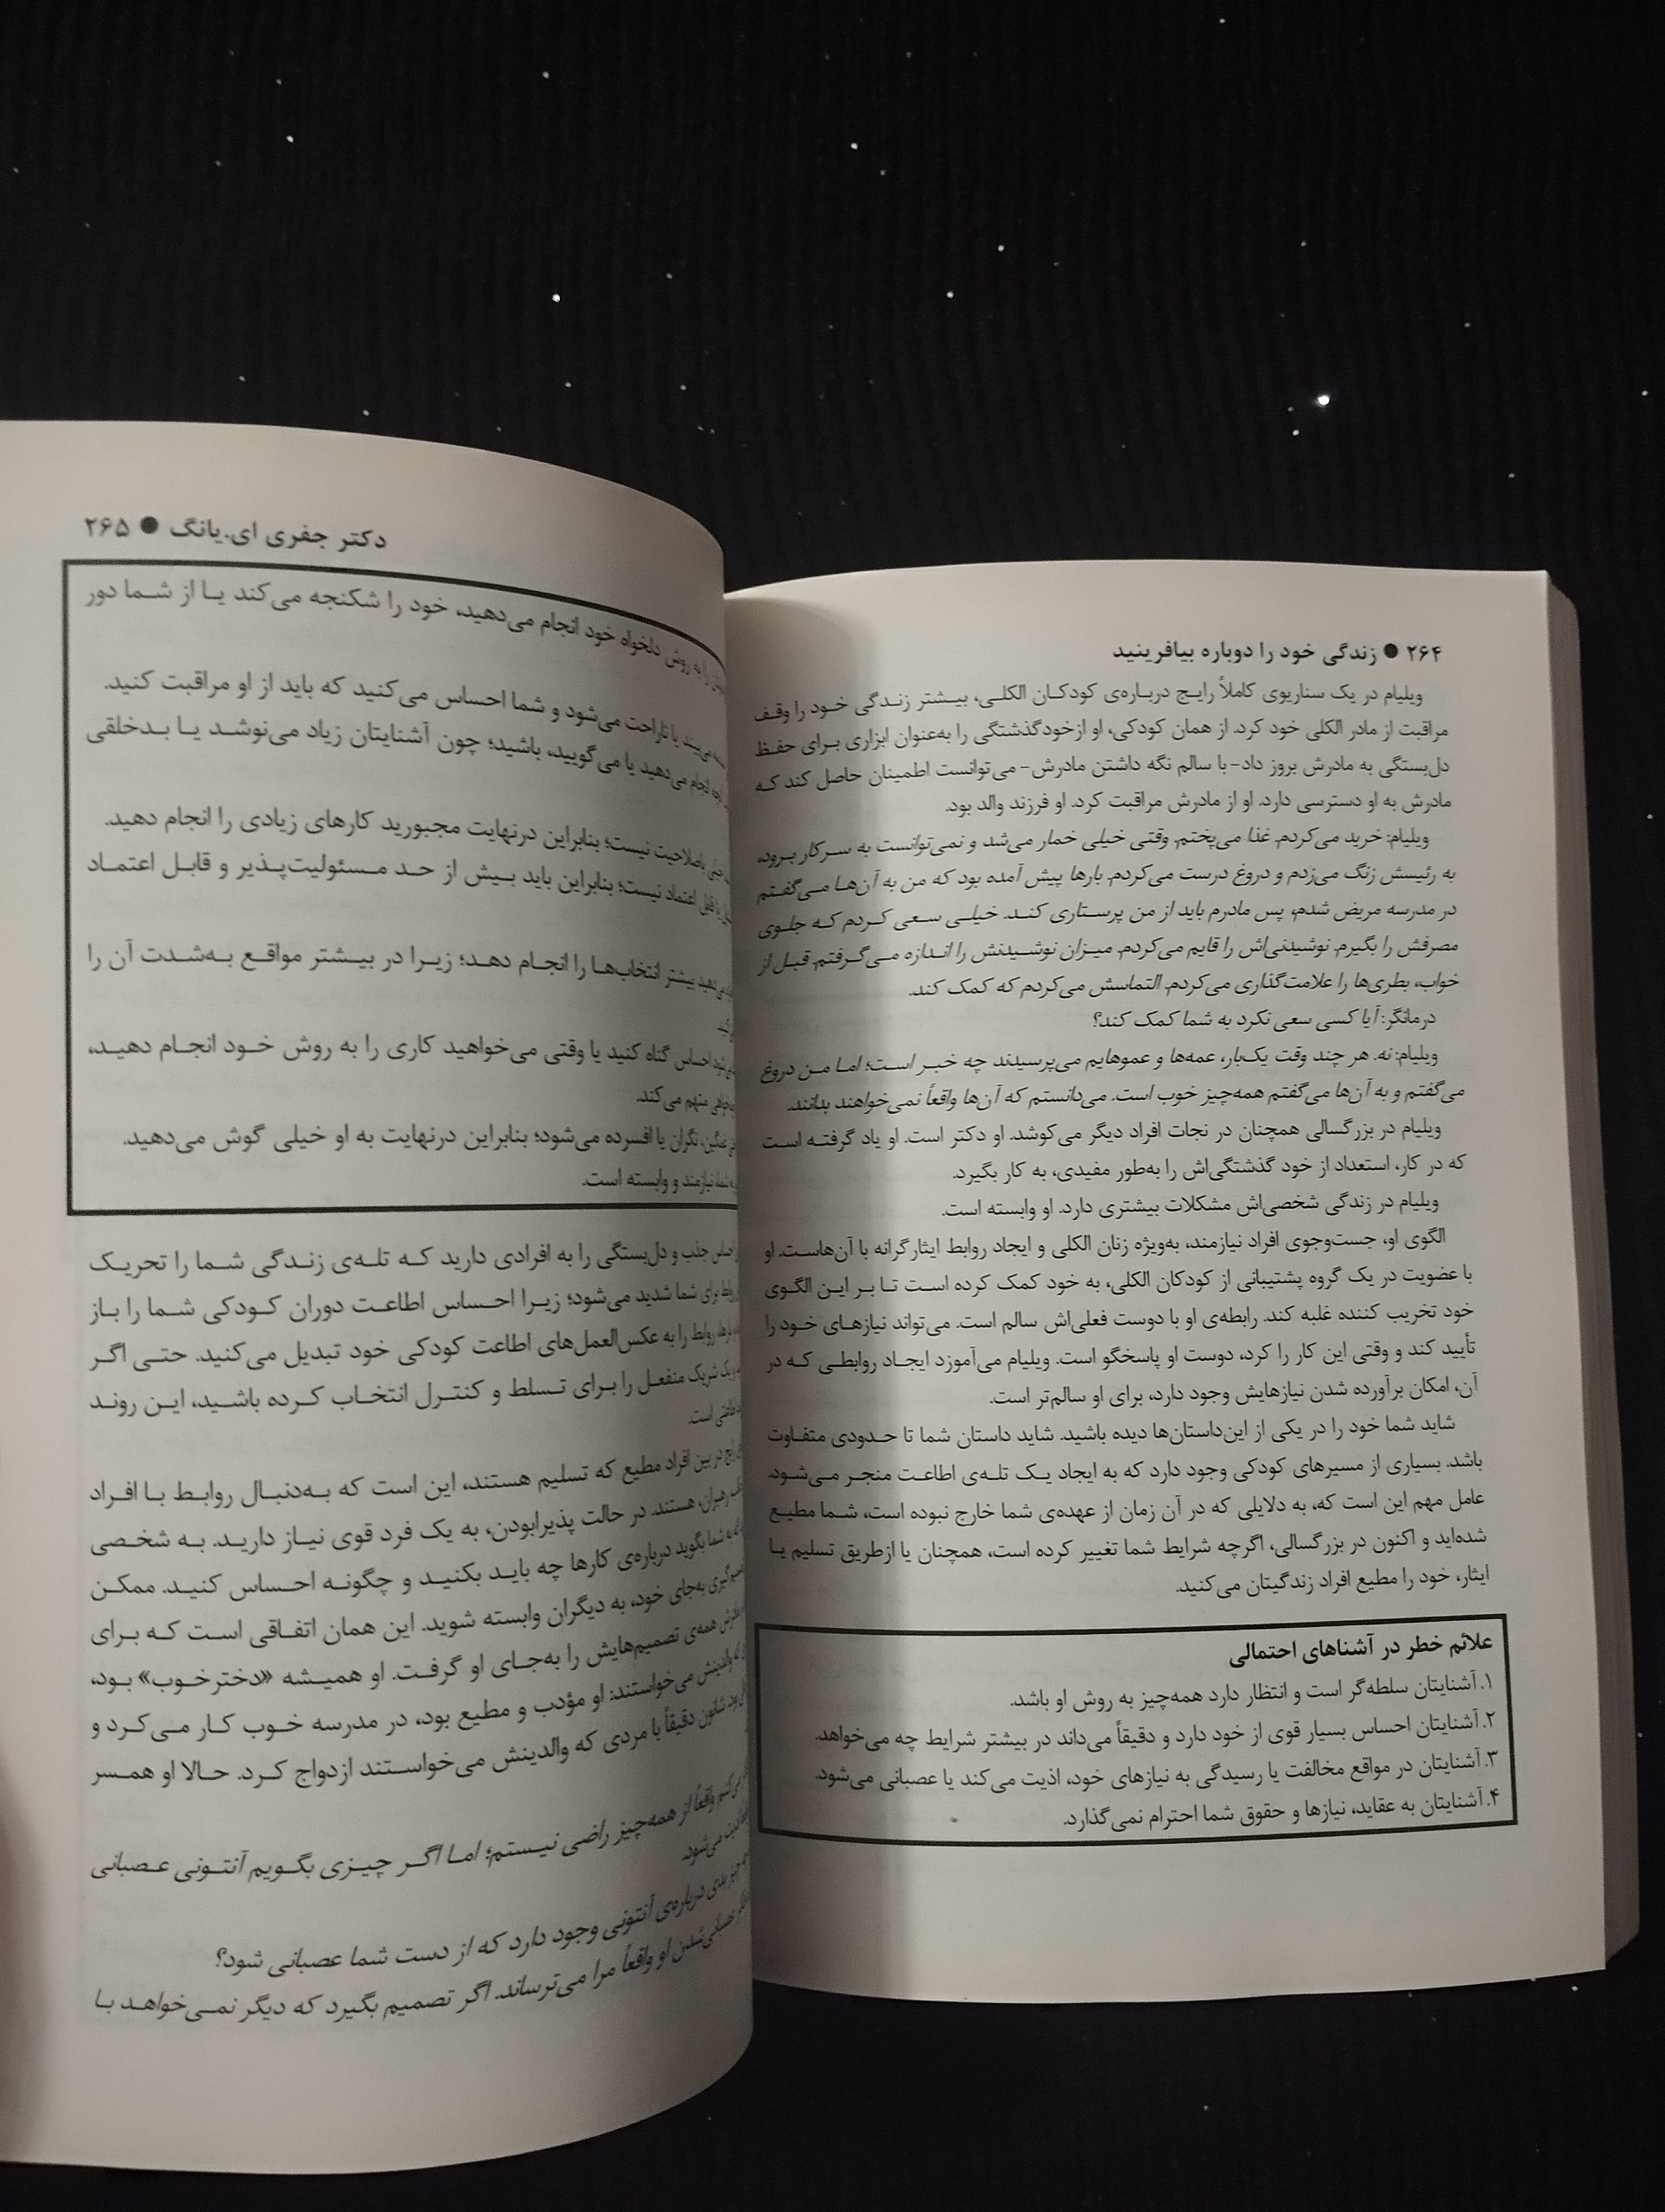 ۲۶۴ ● زندگی خود را دوباره بیافرینید
ویلیام در یک سناریوی کاملاً رایج درباره‌ی کودکان الکلی، بیشتر زندگی خود را وقف
مراقبت از مادر الکلی خود کرد. از همان کودکی، او ازخودگذشتگی را به‌عنوان ابزاری برای حفظ
دل‌بستگی به مادرش بروز داد- با سالم نگه داشتن مادرش- می‌توانست اطمینان حاصل کند که
مادرش به او دسترسی دارد. او از مادرش مراقبت کرد. او فرزند والد بود.
ویلیام: خرید می‌کردم. غذا می‌پختم. وقتی خیلی خمار می‌شد و نمی‌توانست به سرکار برود،
به رئیسش زنگ می‌زدم و دروغ درست می‌کردم. بارها پیش آمده بود که من به آن‌ها می‌گفتم
در مدرسه مریض شدم، پس مادرم باید از من پرستاری کند. خیلی سعی کردم که جلوی
مصرفش را بگیرم. نوشیدنی‌اش را قایم می‌کردم. میزان نوشیدنش را اندازه می‌گرفتم. قبل از
خواب، بطری‌ها را علامت‌گذاری می‌کردم. التماسش می‌کردم که کمک کند.
درمانگر: آیا کسی سعی نکرد به شما کمک کند؟
ویلیام: نه. هر چند وقت یک‌بار، عمه‌ها و عموهایم می‌پرسیدند چه خبر است؛ اما من دروغ
می‌گفتم و به آن‌ها می‌گفتم همه‌چیز خوب است. می‌دانستم که آن‌ها واقعاً نمی‌خواهند بدانند.
ویلیام در بزرگسالی همچنان در نجات افراد دیگر می‌کوشد. او دکتر است. او یاد گرفته است
که در کار، استعداد از خود گذشتگی‌اش را به‌طور مفیدی، به کار بگیرد.
ویلیام در زندگی شخصی‌اش مشکلات بیشتری دارد. او وابسته است.
الگوی او، جست‌وجوی افراد نیازمند، به‌ویژه زنان الکلی و ایجاد روابط ایثارگرانه با آن‌هاست. او
با عضویت در یک گروه پشتیبانی از کودکان الکلی، به خود کمک کرده است تا بر این الگوی
خود تخریب کننده غلبه کند. رابطه‌ی او با دوست فعلی‌اش سالم است. می‌تواند نیازهای خود را
تأیید کند و وقتی این کار را کرد، دوست او پاسخگو است. ویلیام می‌آموزد ایجاد روابطی که در
آن، امکان برآورده شدن نیازهایش وجود دارد، برای او سالم‌تر است.
شاید شما خود را در یکی از این‌داستان‌ها دیده باشید. شاید داستان شما تا حدودی متفاوت
باشد. بسیاری از مسیرهای کودکی وجود دارد که به ایجاد یک تله‌ی اطاعت منجر می‌شود.
عامل مهم این است که، به دلایلی که در آن زمان از عهده‌ی شما خارج نبوده است، شما مطیع
شده‌اید و اکنون در بزرگسالی، اگرچه شرایط شما تغییر کرده است، همچنان یا ازطریق تسلیم یا
ایثار، خود را مطیع افراد زندگیتان می‌کنید.
علائم خطر در آشناهای احتمالی
۱. آشنایتان سلطه‌گر است و انتظار دارد همه‌چیز به روش او باشد.
۲. آشنایتان احساس بسیار قوی از خود دارد و دقیقاً می‌داند در بیشتر شرایط چه می‌خواهد.
۳. آشنایتان در مواقع مخالفت یا رسیدگی به نیازهای خود، اذیت می‌کند یا عصبانی می‌شود.
۴. آشنایتان به عقاید، نیازها و حقوق شما احترام نمی‌گذارد.
دکتر جفری ای.یانگ ● ۲۶۵
را به روش دلخواه خود انجام می‌دهید، خود را شکنجه می‌کند یا از شما دور
یا ناراحت می‌شود و شما احساس می‌کنید که باید از او مراقبت کنید.
انجام می‌دهید یا می‌گویید، باشید؛ چون آشنایتان زیاد می‌نوشد یا بدخلقی
باصلاحیت نیست؛ بنابراین درنهایت مجبورید کارهای زیادی را انجام دهید.
قابل اعتماد نیست؛ بنابراین باید بیش از حد مسئولیت‌پذیر و قابل اعتماد
بیشتر انتخاب‌ها را انجام دهد؛ زیرا در بیشتر مواقع به‌شدت آن را
احساس گناه کنید یا وقتی می‌خواهید کاری را به روش خود انجام دهید،
متهم می‌کند.
غمگین، نگران یا افسرده می‌شود؛ بنابراین درنهایت به او خیلی گوش می‌دهید.
نیازمند و وابسته است.
احساس جذب و دل‌بستگی را به افرادی دارید که تله‌ی زندگی شما را تحریک
برای شما شدید می‌شود؛ زیرا احساس اطاعت دوران کودکی شما را باز
روابط را به عکس‌العمل‌های اطاعت کودکی خود تبدیل می‌کنید. حتی اگر
یک شریک منفعل را برای تسلط و کنترل انتخاب کرده باشید، این روند
است.
در بین افراد مطیع که تسلیم هستند، این است که به‌دنبال روابط با افراد
هستند. در حالت پذیرابودن، به یک فرد قوی نیاز دارید. به شخصی
به شما بگوید درباره‌ی کارها چه باید بکنید و چگونه احساس کنید. ممکن
به‌جای خود، به دیگران وابسته شوید. این همان اتفاقی است که برای
همه‌ی تصمیم‌هایش را به‌جای او گرفت. او همیشه «دخترخوب» بود،
والدینش می‌خواستند: او مؤدب و مطیع بود، در مدرسه خوب کار می‌کرد و
دقیقاً با مردی که والدینش می‌خواستند ازدواج کرد. حالا او همسر
واقعاً از همه‌چیز راضی نیستم؛ اما اگر چیزی بگویم آنتونی عصبانی
می‌شود.
درباره‌ی آنتونی وجود دارد که از دست شما عصبانی شود؟
او واقعاً مرا می‌ترساند. اگر تصمیم بگیرد که دیگر نمی‌خواهد با